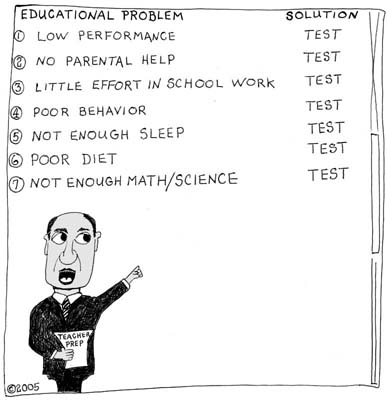 EDUCATIONAL PROBLEM SOLUTION
① LOW PERFORMANCE TEST
② NO PARENTAL HELP TEST
③ LITTLE EFFORT IN SCHOOL WORK TEST
④ POOR BEHAVIOR TEST
⑤ NOT ENOUGH SLEEP TEST
⑥ POOR DIET TEST
⑦ NOT ENOUGH MATH/SCIENCE TEST
TEACHER
PREP
©2005